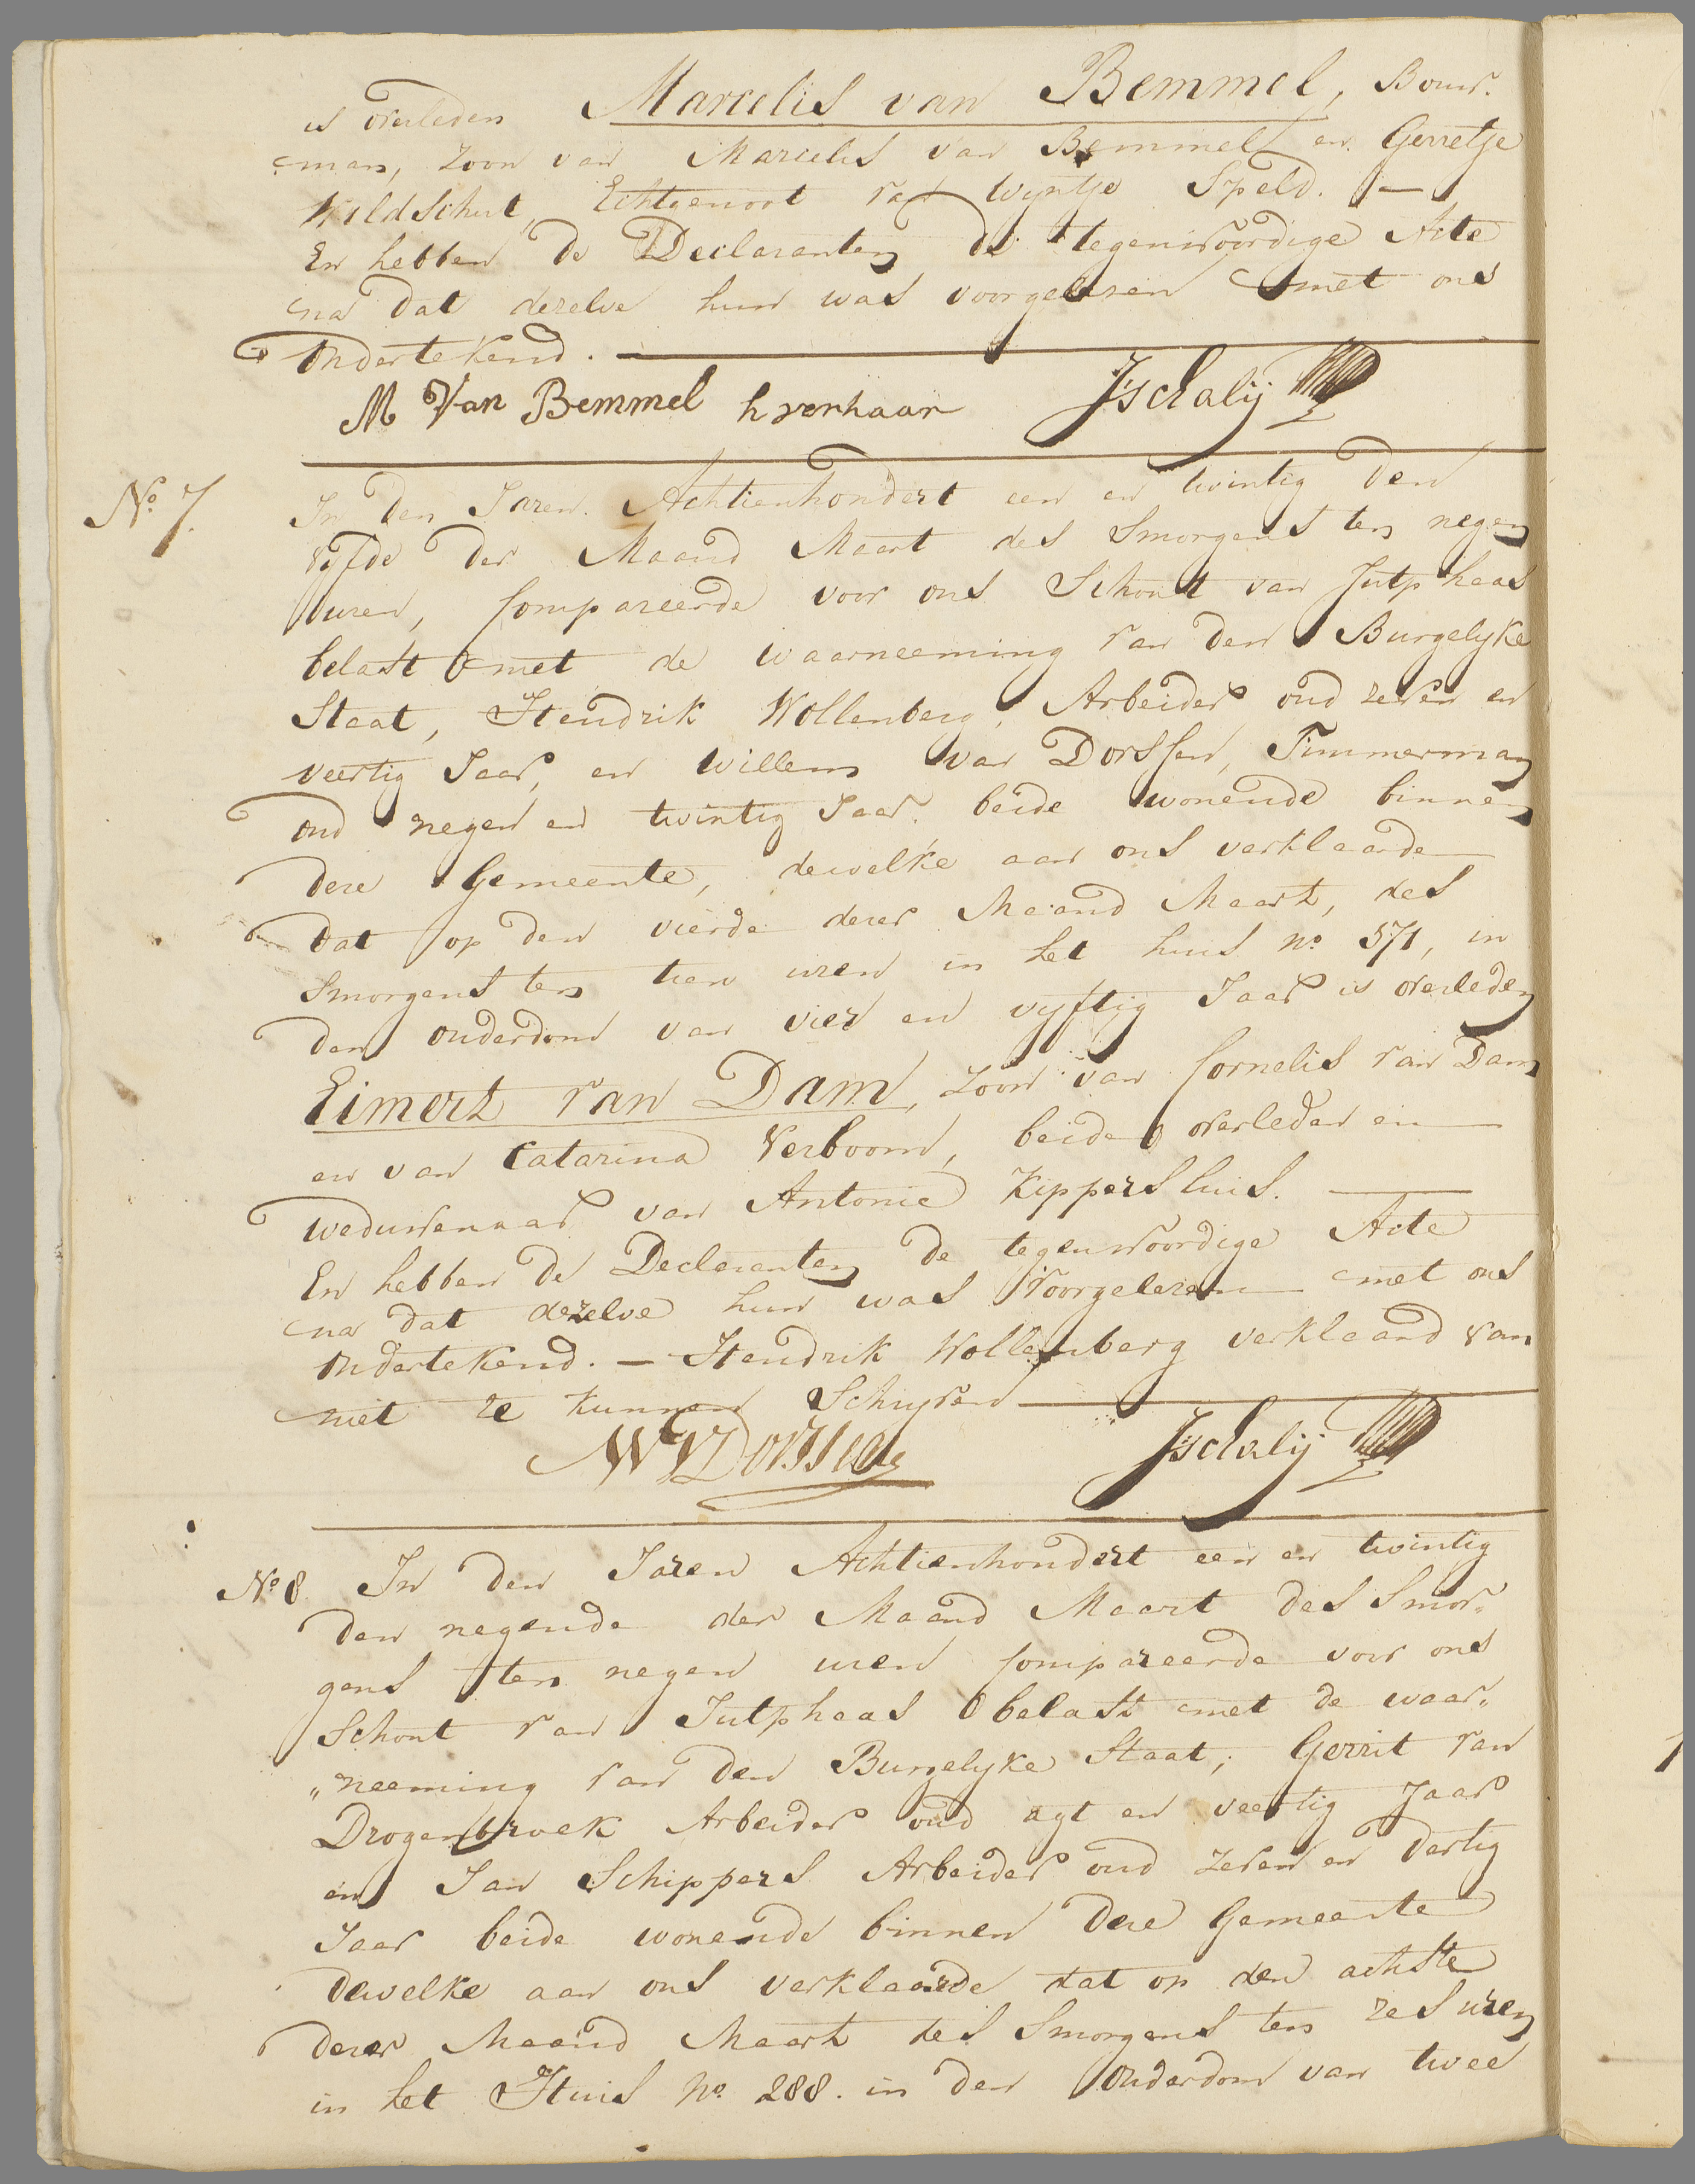 is overleden Marcelis van Bemmel, Bouw-
man, Zoon van Marcelis van Bemmel en Gerretje
Wildschut, Echtgenoot van Wyntje Speld. —
En hebben de Declaranten de tegenwoordige Acte
na dat dezelve hun was voorgelezen met ons
ondertekend. —
M Van Bemmel h verhaar JSchalij
No 7. In den Jaren Achtienhondert een en twintig den
vyfde der Maand Maart des Smorgens ten negen
uren, Compareerde voor ons Schout van Jutphaas
belast met de waarneeming van den Burgelyke
Staat, Hendrik Wollenberg, Arbeider oud zeven en
veertig Jaar, en Willem van Dorssen, Timmerman
oud negen en twintig Jaar, beide wonende binnen
deze Gemeente, dewelke aan ons verklaarde
dat op den vierde dezer Maand Maart, des
Smorgens ten tien uren in het huis no 571, in
den ouderdom van vier en vyftig Jaar is overleden
Eimert van Dam, Zoon van Cornelis van Dam
en van Catarina Verboom, beide overleden en
weduwenaar van Antonie Kippersluis. —
En hebben de Declaranten de tegenwoordige Acte
na dat dezelve hun was voorgelezen met ons
ondertekend. — Hendrik Wollenberg verklaard van
niet te kunnen Schryven —
WVDorssen JSchalij
No 8 In den Jaren Achtienhondert een en twintig
den negende der Maand Maart des Smor„
gens ten negen uren Compareerde voor ons
Schout van Jutphaas belast met de waar„
„neeming van den Burgelyke Staat, Gerrit van
Drogenbroek Arbeider oud agt en veertig Jaar
en Jan Schippers Arbeider oud zeven en dertig
Jaar beide wonende binnen deze Gemeente
dewelke aan ons verklaarde dat op den achste
dezer Maand Maart des Smorgens ten zes uren
in het Huis No. 288. in den Ouderdom van twee